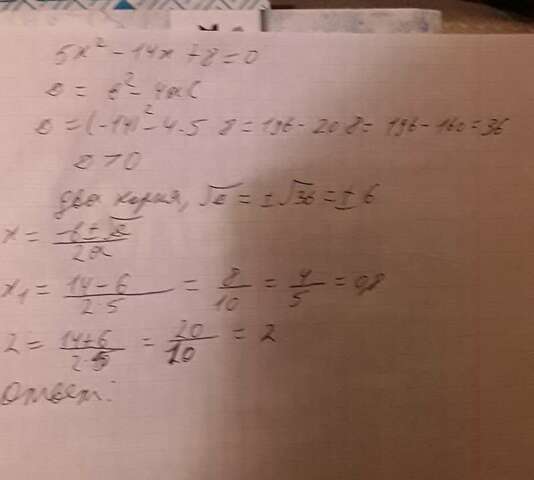 5x² - 14x + 8 = 0
D = b² - 4ac
D = (-14)² - 4·5 8 = 196 - 20·8 = 196 - 160 = 36
D > 0
два корня, √D = ±√36 = ± 6
x = (-b ± √D)/(2a)
x₁ = (14 - 6)/(2·5) = 8/10 = 4/5 = 0,8
2 = (14 + 6)/(2·5) = 20/10 = 2
Ответ: